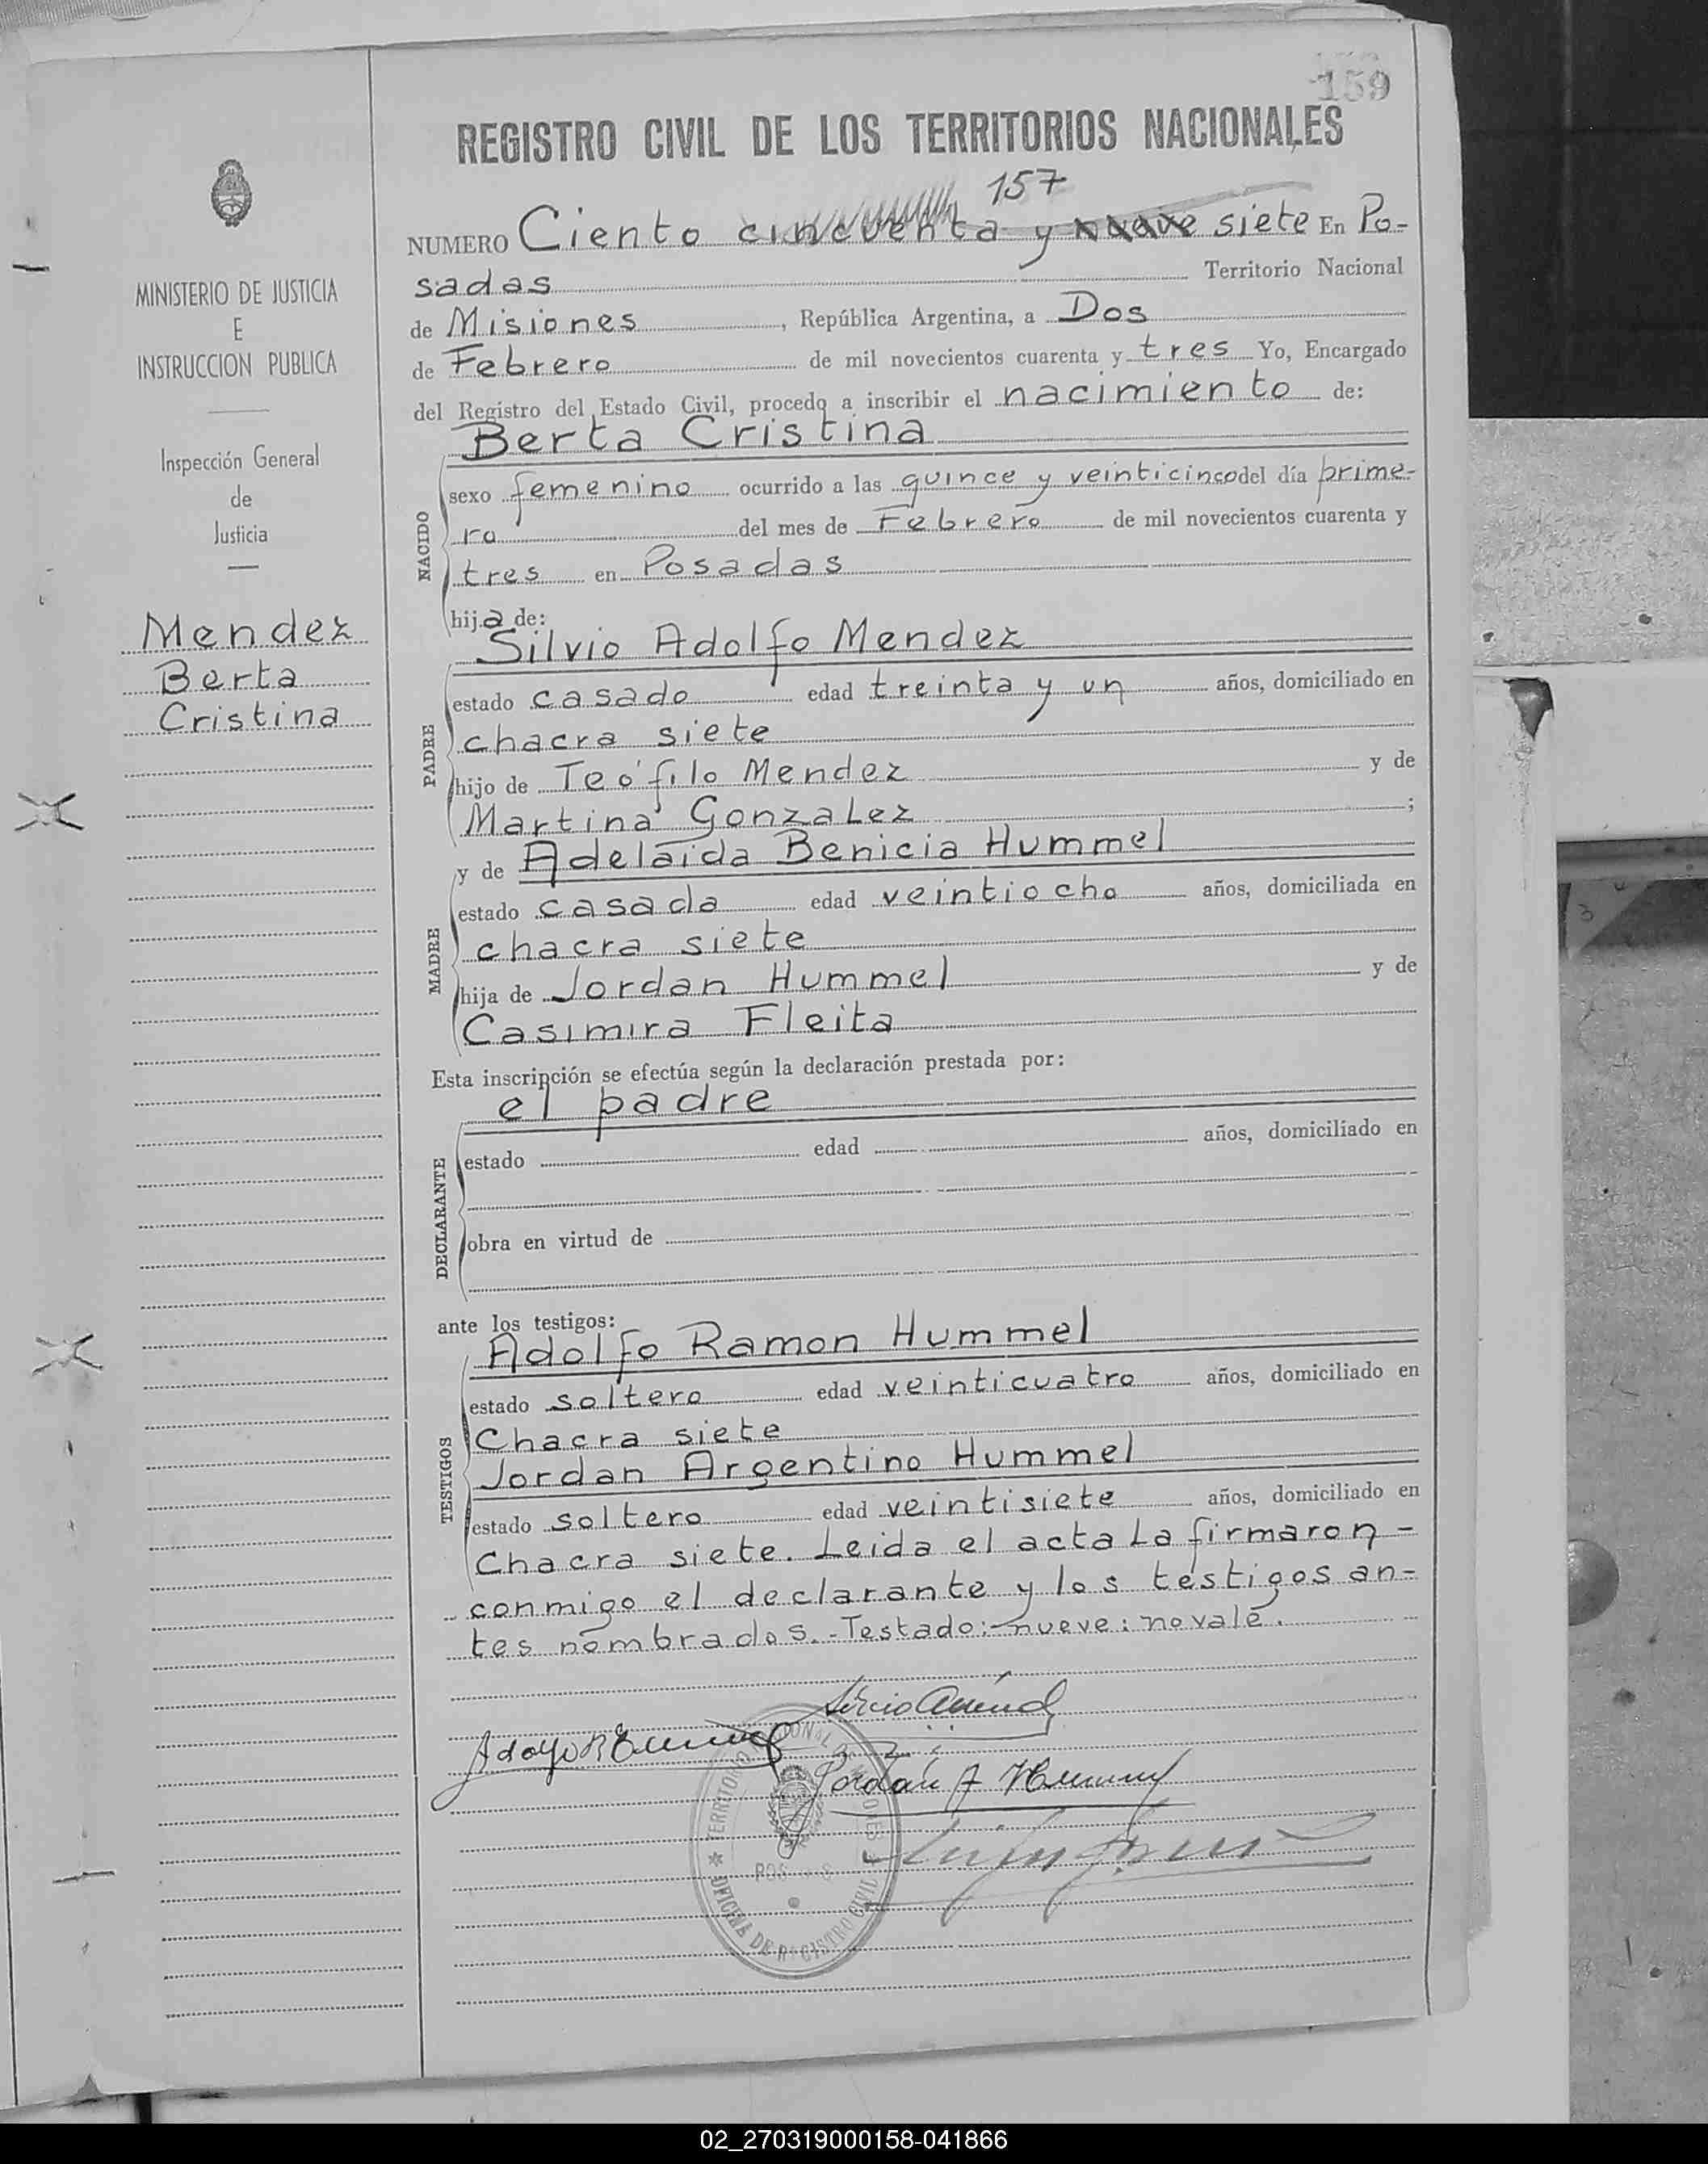 159
REGISTRO CIVIL DE LOS TERRITORIOS NACIONALES
157
NUMERO Ciento cincuenta y nueve siete En Po-
sadas Territorio Nacional
de Misiones, República Argentina, a Dos
de Febrero de mil novecientos cuarenta y tres Yo, Encargado
del Registro del Estado Civil, procedo a inscribir el nacimiento de:
Berta Cristina
NACIDO
sexo femenino ocurrido a las quince y veinticinco del día prime-
ro del mes de Febrero de mil novecientos cuarenta y
tres en Posadas
hija de:
Silvio Adolfo Mendez
PADRE
estado casado edad treinta y un años, domiciliado en
chacra siete
hijo de Teófilo Mendez y de
Martina Gonzalez ;
y de Adelaida Benicia Hummel
MADRE
estado casada edad veintiocho años, domiciliada en
chacra siete
hija de Jordan Hummel y de
Casimira Fleita
Esta inscripción se efectúa según la declaración prestada por:
el padre
DECLARANTE
estado edad años, domiciliado en
obra en virtud de
ante los testigos:
Adolfo Ramon Hummel
TESTIGOS
estado soltero edad veinticuatro años, domiciliado en
Chacra siete
Jordan Argentino Hummel
estado soltero edad veintisiete años, domiciliado en
Chacra siete. Leida el acta la firmaron -
conmigo el declarante y los testigos an-
tes nombrados.- Testado:- nueve: no vale.
Jordán A Hummel
OFICINA DE REGISTRO CIVIL
MINISTERIO DE JUSTICIA
E
INSTRUCCION PUBLICA
Inspección General
de
Justicia
Mendez
Berta
Cristina
02_270319000158-041866